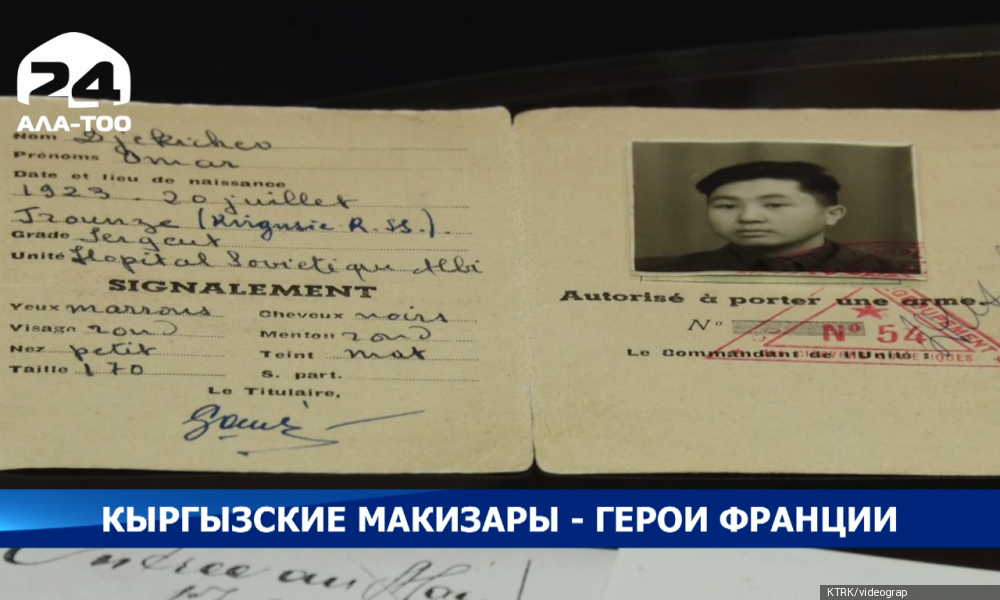 24
АЛА-ТОО
Nom Djekichev
Prénoms Omar
Date et lieu de naissance
1923 . 20 juillet
Frounze (Kirgusie R.SS.).
Grade Sergent
Unité Hopital Sovietique Albi
SIGNALEMENT
Yeux marrons Cheveux noirs
Visage rond Menton rond
Nez petit Teint mat
Taille 170 S. part.
Le Titulaire,
Autorisé à porter une arme.
N°
N° 54
Le Commandant de l'Unité :
КЫРГЫЗСКИЕ МАКИЗАРЫ - ГЕРОИ ФРАНЦИИ
KTRK/videograp